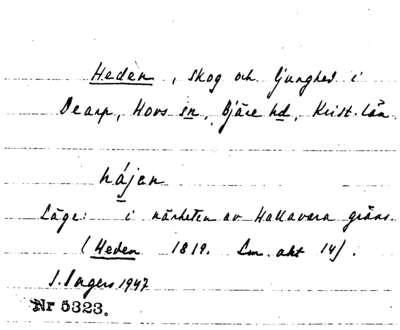 Heden, skog och ljunghed i
Dearp, Hovs sn, Bjäre hd, Krist. län.
hájen
Läge: i närheten av Hallavara gräns.
(Heden 1819. Lm. akt 14).
Ingers 1947
Nr 5323.